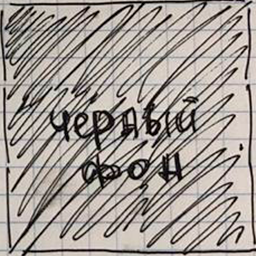 чёрный
фон